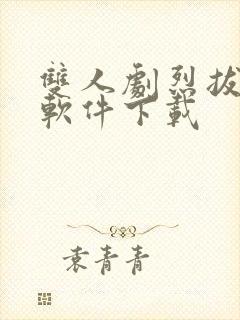 雙人劇烈拔
軟件下載
袁青青